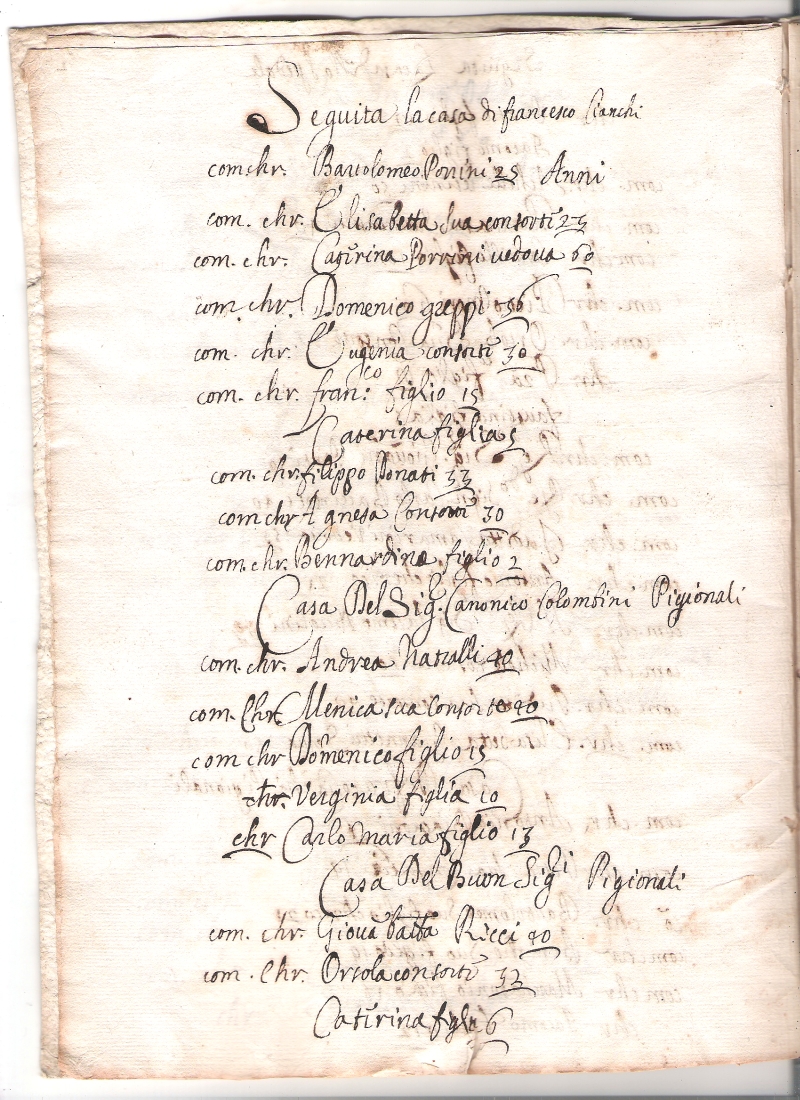 Seguita la casa di francesco Cianchi
com chr. Bartolomeo Porrini 25 Anni
com. chr. Elisabetta sua consorte 23
com. chr. Caterina Porrini vedova 60
com. chr. Domenico greppi 36
com. chr. Eugenia consorte 30
com. chr. fran:co figlio 15
Caterina figlia 5
com. chr. filippo Donati 33
com chr Agnesa Consorte 30
com. chr. Bennardino figlio 2
Casa Del Sig.r Canonico Colombini Pigionali
com. chr. Andrea Natalli 40
com. Chr. Menica sua Consorte 40
com chr Domenico figlio 15
chr. Verginia figlia 10
chr Carlo Maria figlio 13
Casa Del Buon Sigri Pigionali
com. chr. Giova batta Ricci 40
com. Chr. Orsola consorte 32
Caterina figlia 6